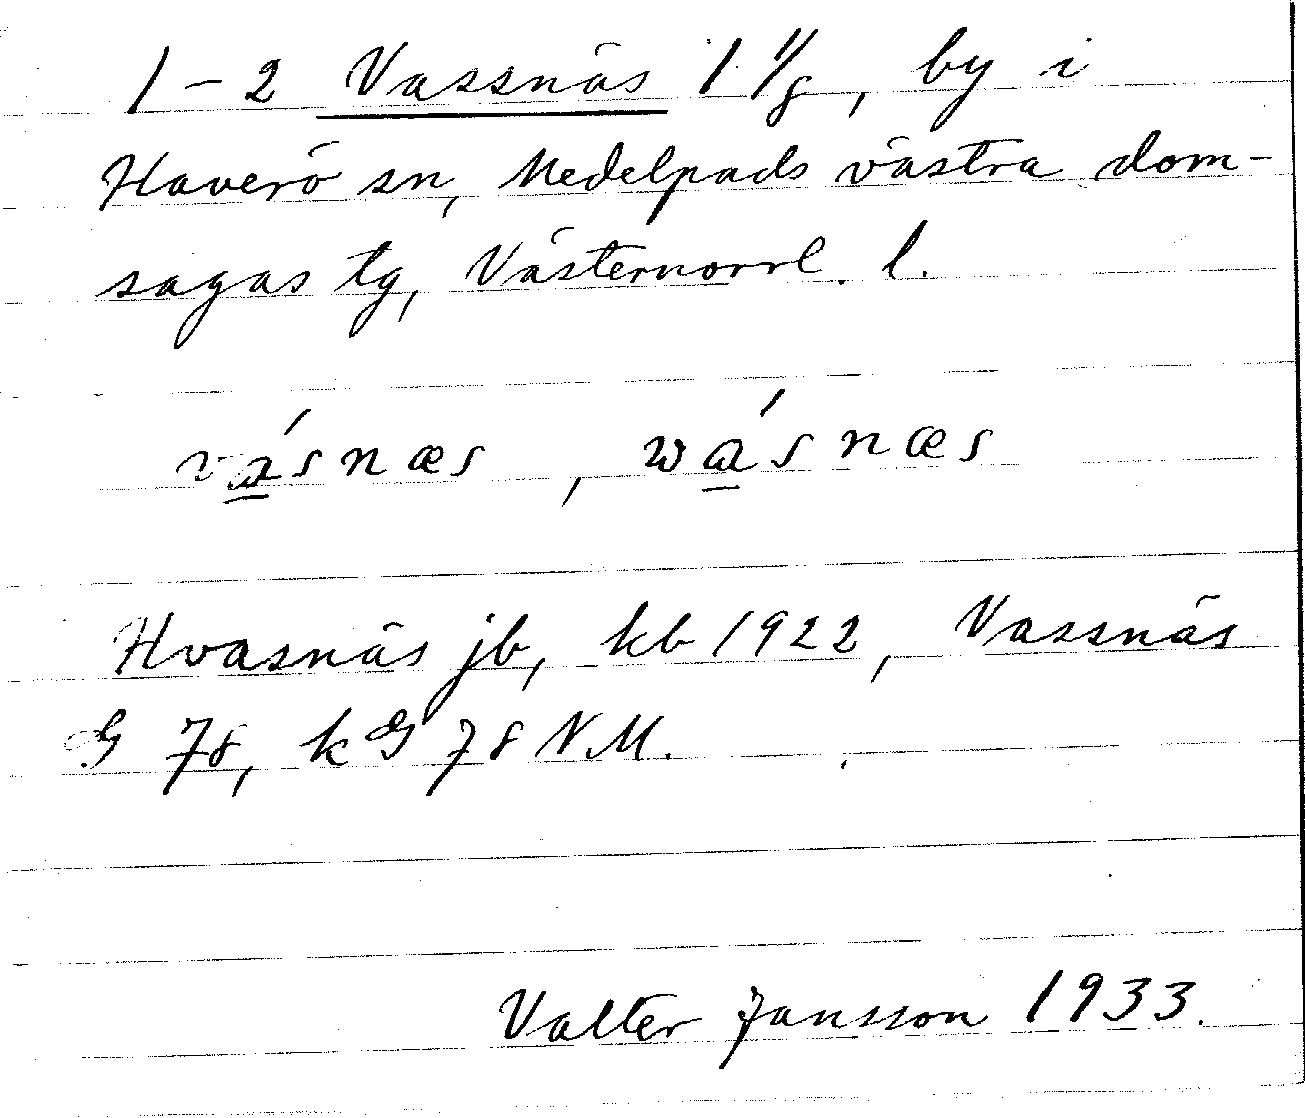 1-2 Vassnäs 1 1/8, by i
Haverö sn, Medelpads västra dom-
sagas tg, Västernorrl. l.
va̲´snæs, wa̲´snæs
Hvasnäs jb, kb 1922, Vassnäs
G 78, kG 78 N.M.
Valter Jansson 1933.